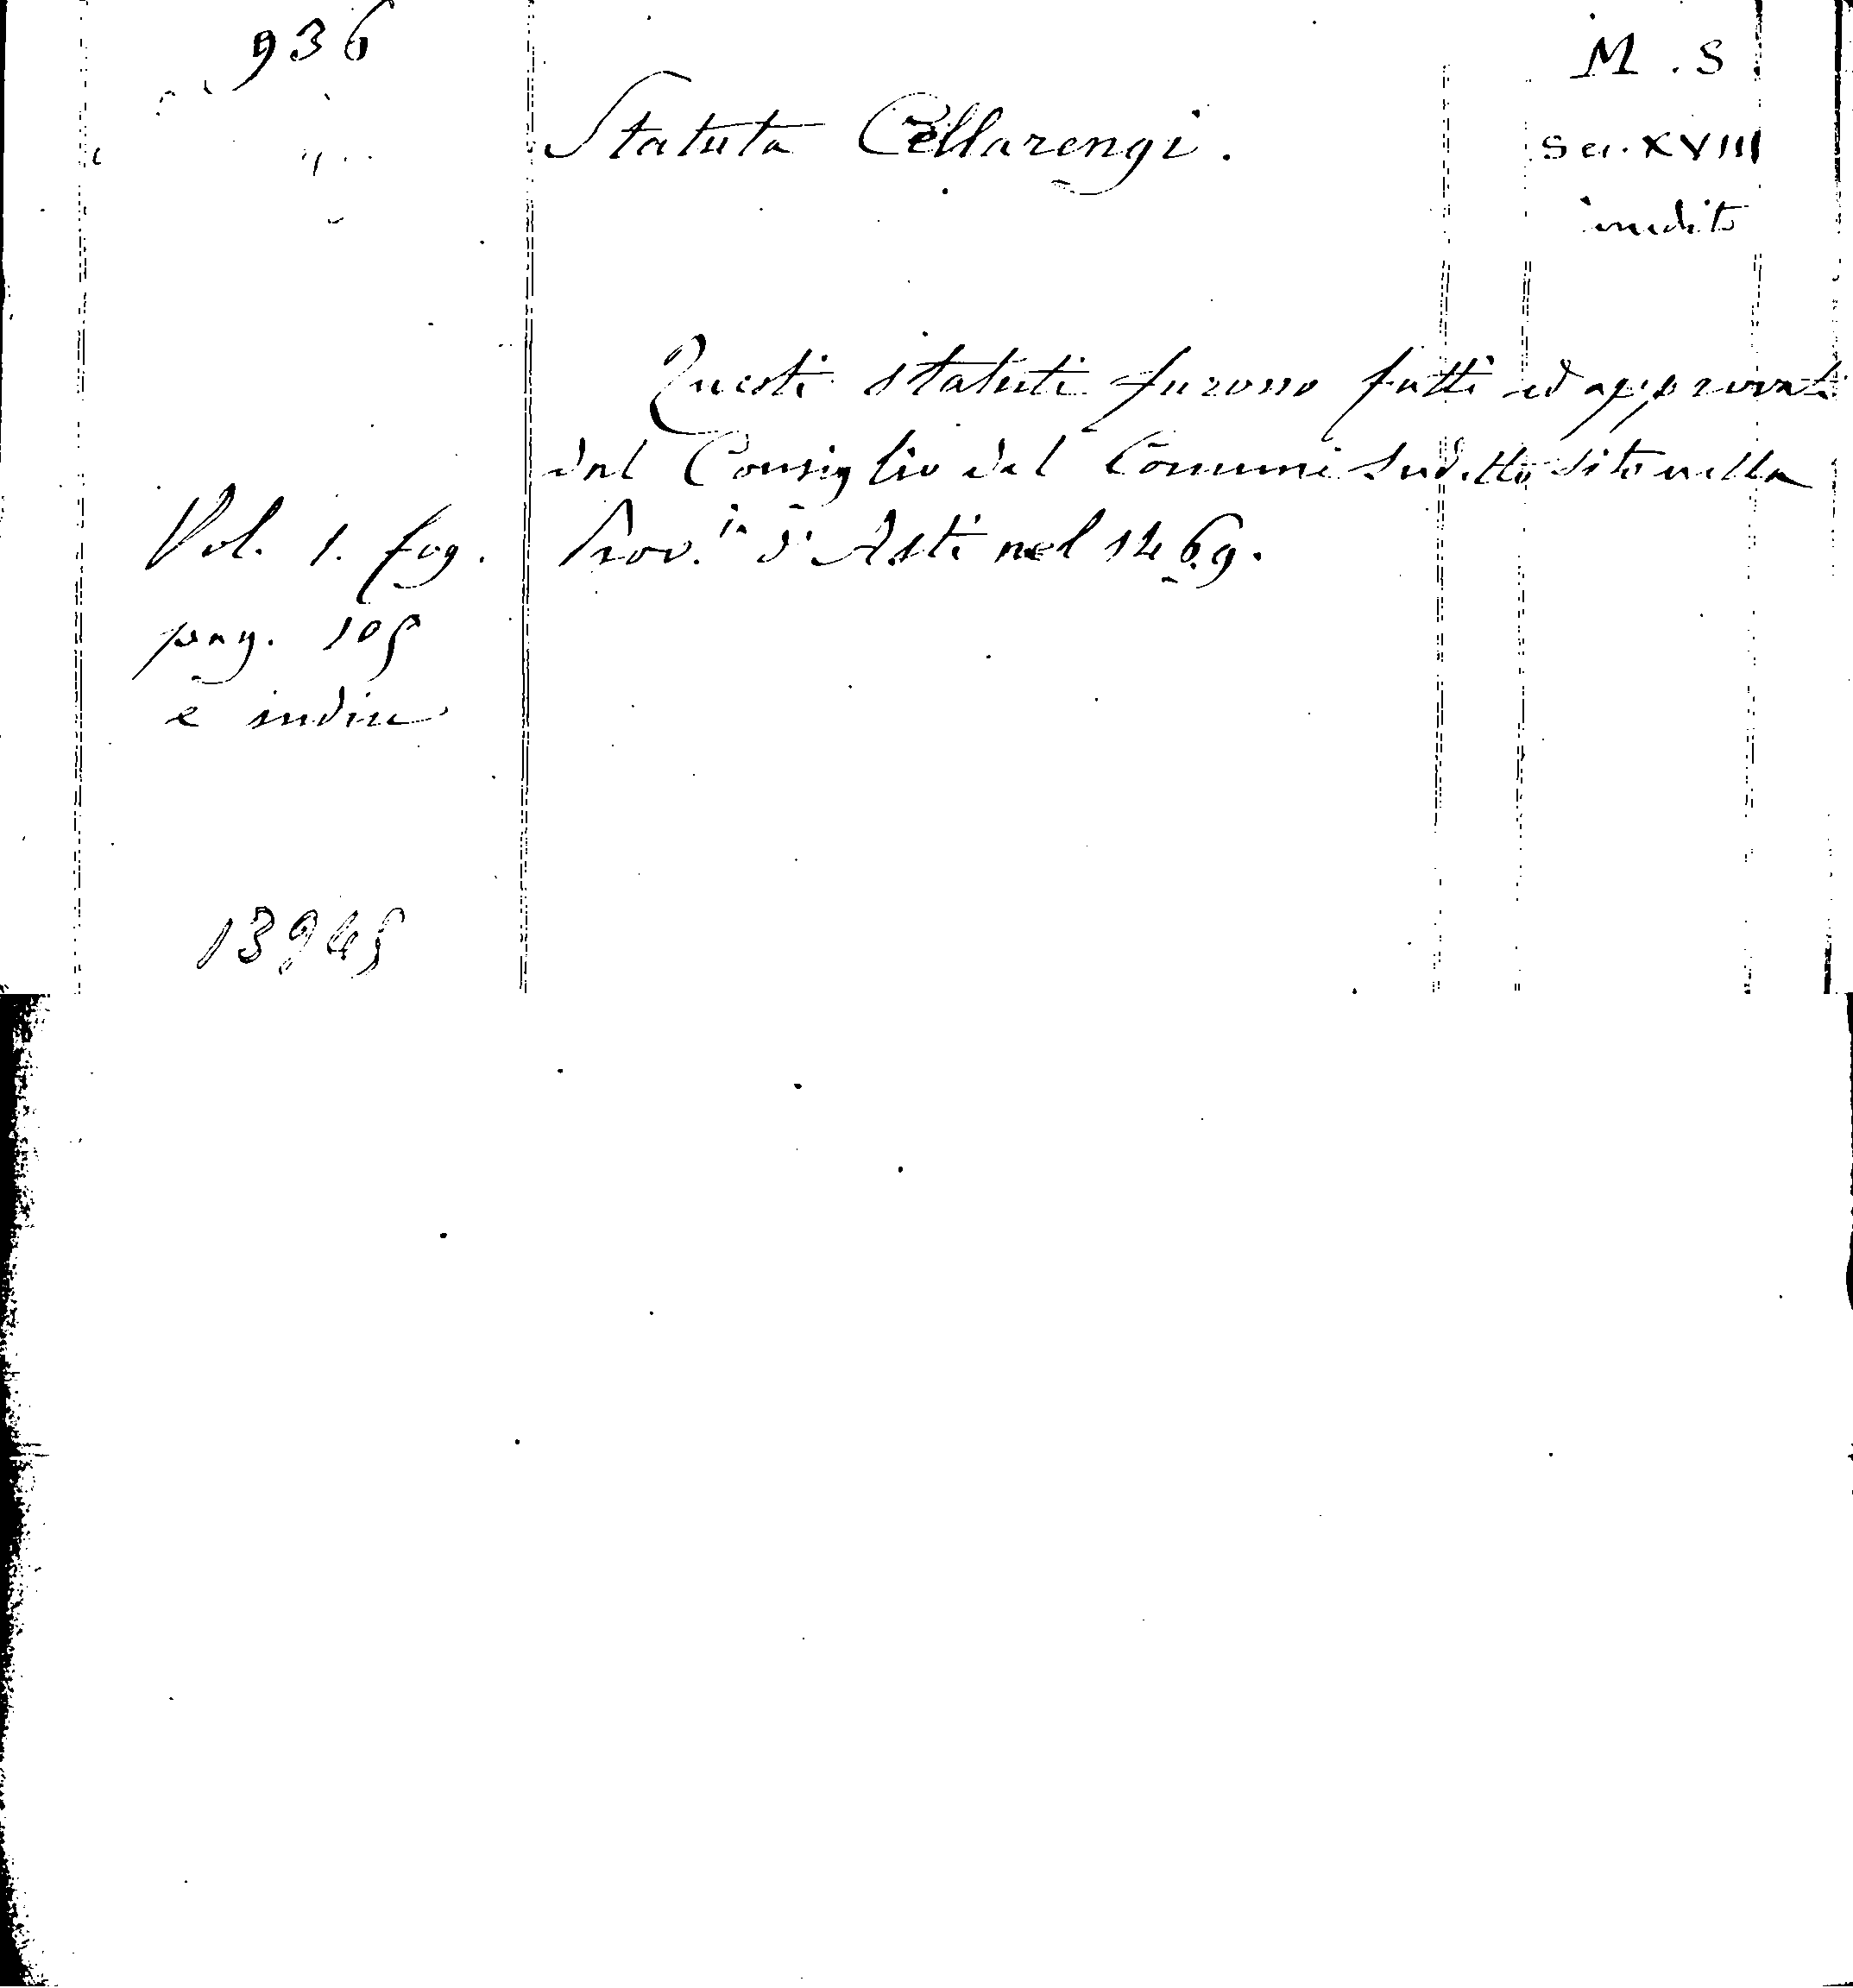 936
M.S.
Statuta Cellarengi.
Sec. XVIII
inedito
Questi statuti furono fatti ed approvati
dal Consiglio del Comune sudetto sito nella
Prov.ia d'Asti nel 1469.
Vol. 1. fog.
pag. 105
e indice
13945